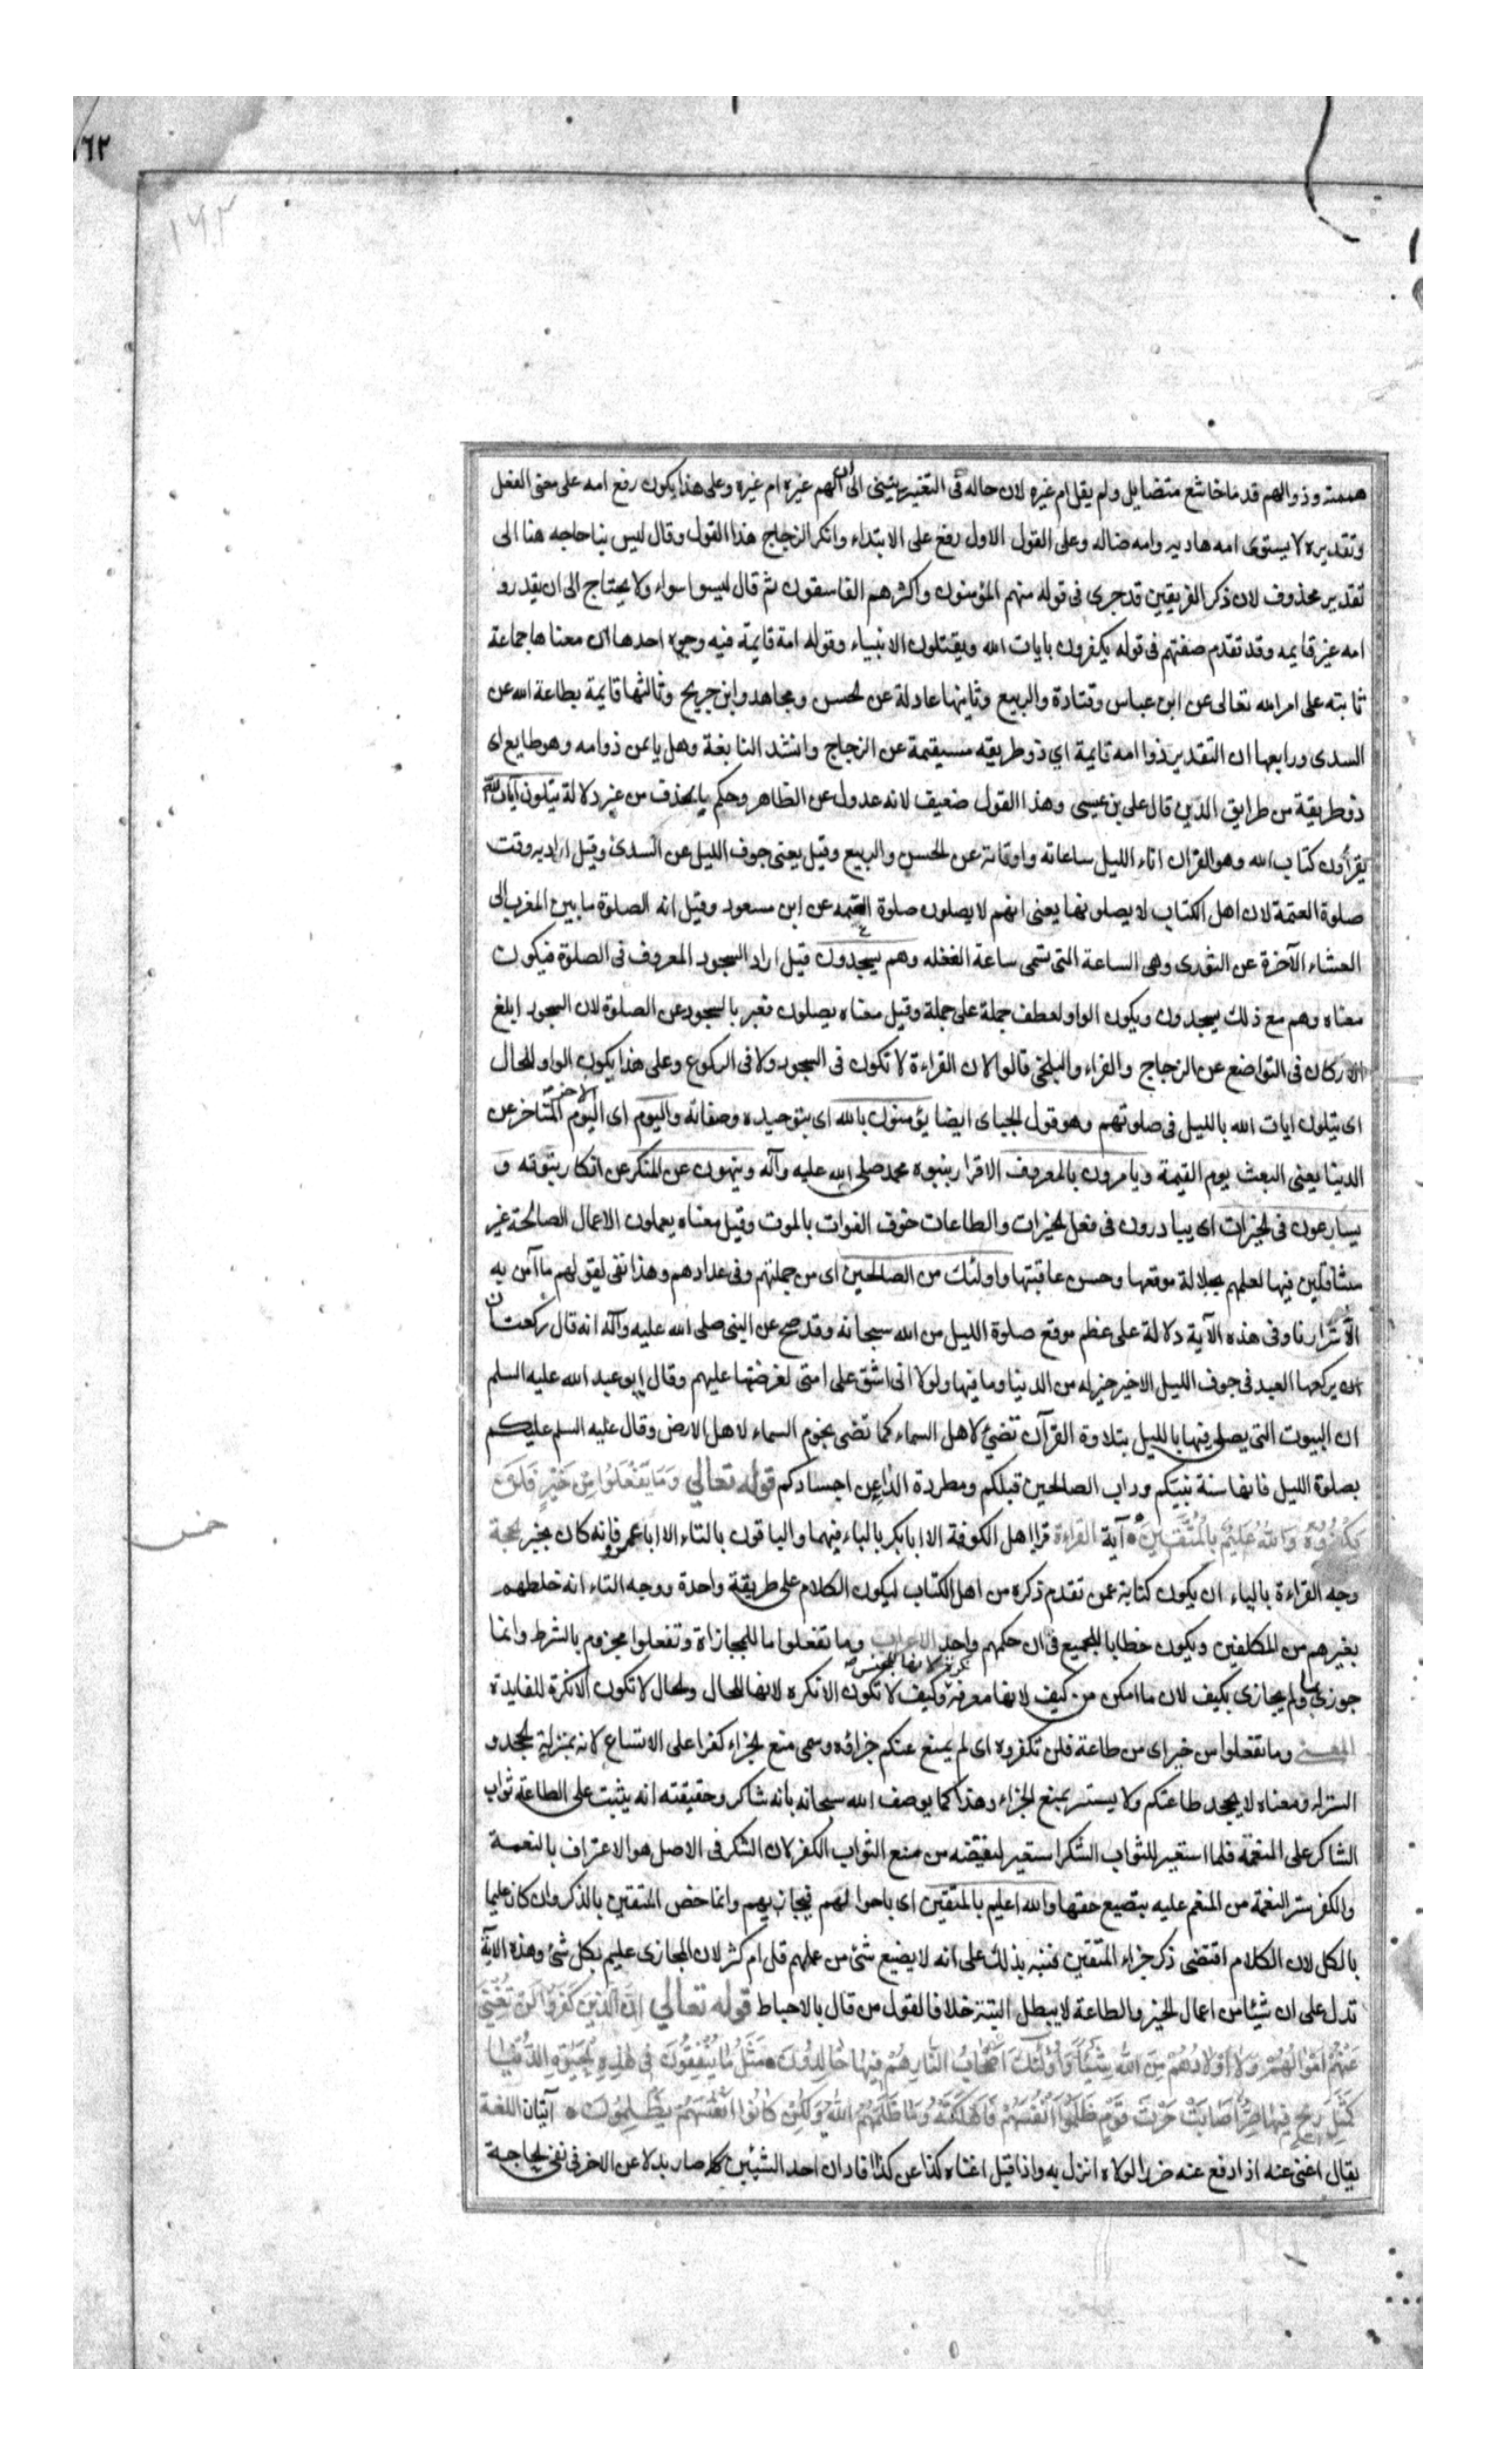 ١٦٢
١٦٢
هممته وذو الهم قدما خاشع متضايل ولم يقل ام غيره لان حاله فى التغير ينبئ الى ان الهم غيره ام غيره وعلى هذا يكون رفع امه على معنى الفعل
وتقديره لا يستوى امه هاديه وامه ضاله وعلى القول الاول رفع على الابتداء وانكر الزجاج هذا القول وقال ليس بنا حاجه هنا الى
تقدير محذوف لان ذكر الفريقين قد جرى فى قوله منهم المؤمنون واكثرهم الفاسقون ثم قال ليسوا سواء ولا يحتاج الى ان يقدر و
امه غير قايمه وقد تقدم صفتهم فى قوله يكفرون بايات الله ويقتلون الانبياء وقوله امة قايمة فيه وجوه احدها ان معناها جماعة
ثابته على امر الله تعالى عن ابن عباس وقتادة والربيع وثانيها عادلة عن الحسن ومجاهد وابن جريج وثالثها قايمة بطاعة الله عن
السدى ورابعها ان التقدير ذوا امه قايمة اي ذو طريقه مستقيمة عن الزجاج وانشد النابغة وهل ياثمن ذو امه وهو طايع اى
ذو طريقة من طرايق الدين قال على بن عيسى وهذا القول ضعيف لانه عدول عن الظاهر وحكم بالحذف من غير دلالة يتلون آيات الله
يقرأون كتاب الله وهو القران اناء الليل ساعاته واوقاته عن الحسن والربيع وقيل يعنى جوف الليل عن السدى وقيل اراد به وقت
صلوة العتمة لان اهل الكتاب لا يصلونها يعنى انهم لا يصلون صلوة العتمه عن ابن مسعود وقيل انه الصلوة ما بين المغرب الى
العشاء الآخرة عن الثورى وهى الساعة التى تسمى ساعة الغفله وهم يسجدون قيل اراد السجود المعروف فى الصلوة فيكون
معناه وهم مع ذلك يسجدون ويكون الواو لعطف جملة على جملة وقيل معناه يصلون فعبر بالسجود عن الصلوة لان السجود ابلغ
الاركان فى التواضع عن الزجاج والفراء والبلخى قالوا لان القراءة لا تكون فى السجود ولا فى الركوع وعلى هذا يكون الواو للحال
اى يتلون ايات الله بالليل فى صلوتهم وهو قول الجباى ايضا يؤمنون بالله اى بتوحيده وصفاته واليوم الاخر اى اليوم المتاخر عن
الدينا يعنى البعث يوم القيمة ويامرون بالمعروف الاقرار بنبوه محمد صلى الله عليه وآله وينهون عن المنكر عن انكار نبوته و
يسارعون فى الخيرات اى يبادرون فى فعل الخيرات والطاعات خوف الفوات بالموت وقيل معناه يعملون الاعمال الصالحة غير
متثاقلين فيها لعلمهم بجلالة موقعها وحسن عاقبتها واولئك من الصالحين اى من جملتهم وفى عدادهم وهذا نفى لقولهم ما آمن به
الا شرارنا وفى هذه الآية دلالة على عظم موقع صلوة الليل من الله سبحانه وقد صح عن النبى صلى الله عليه وآله انه قال ركعتان
ان يركعها العبد فى جوف الليل الاخير خير له من الدنيا وما فيها ولولا انى اشق على امتى لفرضتها عليهم وقال ابو عبد الله عليه السلم
ان البيوت التى يصلى فيها بالليل بتلاوة القرآن تضئ لاهل السماء كما تضى نجوم السماء لاهل الارض وقال عليه السلم عليكم
بصلوة الليل فانها سنة نبيكم وداب الصالحين قبلكم ومطردة الداء عن اجسادكم قوله تعالى وَمَا يَفْعَلُوا مِنْ خَيْرٍ فَلَنْ
يُكْفَرُوهُ وَاللهُ عَلِيمٌ بِالْمُتَّقِينَ آية القراءة قرا اهل الكوفة الا ابا بكر بالياء فيهما والباقون بالتاء الا ابا عمرو فانه كان يخير لحجة
وجه القراءة بالياء ان يكون كناية عمن تقدم ذكره من اهل الكتاب ليكون الكلام على طريقة واحدة ووجه التاء انه خلطهم
بغيرهم من المكلفين ويكون خطابا للجميع فى ان حكمهم واحد الاعراب وما تفعلوا ما للمجازاة وتفعلوا مجزوم بالشرط وانما
جوزى بما ولم يجازى بكيف لان ما امكن من كيف لانها معرفة ونكرة لانها للجنس وكيف لا تكون الا نكره لانها للحال والحال لا تكون الا نكرة للفايدة
المعنى وما تفعلوا من خير اى من طاعة فلن تكفروه اى لم يمنع عنكم جزاؤه وسمى منع الجزاء كفرا على الاتساع لانه بمنزلة الجحد و
الستر له ومعناه لا يجحد طاعتكم ولا يستر بمنع الجزاء وهذا كما يوصف الله سبحانه بانه شاكر وحقيقته انه يثيب على الطاعة ثواب
الشاكر على النعمة فلما استعير للثواب الشكر استعير لنقيضه من منع الثواب الكفر لان الشكر فى الاصل هو الاعتراف بالنعمة
والكفر ستر النعمة من المنعم عليه بتضيع حقها والله اعليم بالمتقين اى باحوالهم فيجازيهم وانما خص المتقين بالذكر وان كان عليما
بالكل لان الكلام اقتضى ذكر جزاء المتقين فنبه بذلك على انه لا يضيع شئ من عملهم قل ام كثر لان المجازى عليم بكل شئ وهذه الآية
تدل على ان شيئا من اعمال الخير والطاعة لا يبطل البتة خلافا لقول من قال بالاحباط قوله تعالى اِنَّ الَّذِينَ كَفَرُوا لَنْ تُغْنِيَ
عَنْهُمْ اَمْوَالُهُمْ وَلَا اَوْلَادُهُمْ مِنَ اللهِ شَيْئًا وَاُولٰئِكَ اَصْحَابُ النَّارِ هُمْ فِيهَا خَالِدُونَ مَثَلُ مَا يُنْفِقُونَ فِي هٰذِهِ الْحَيٰوةِ الدُّنْيَا
كَمَثَلِ رِيحٍ فِيهَا صِرٌّ اَصَابَتْ حَرْثَ قَوْمٍ ظَلَمُوا اَنْفُسَهُمْ فَاَهْلَكَتْهُ وَمَا ظَلَمَهُمُ اللهُ وَلٰكِنْ كَانُوا اَنْفُسَهُمْ يَظْلِمُونَ آيتان اللغة
يقال اغنى عنه اذا دفع عنه ضررا لولاه انزل به واذا قيل اغناه كذا عن كذا افاد ان احد الشيئين صار بدلا عن الاخر فى نفى الحاجة
خمس